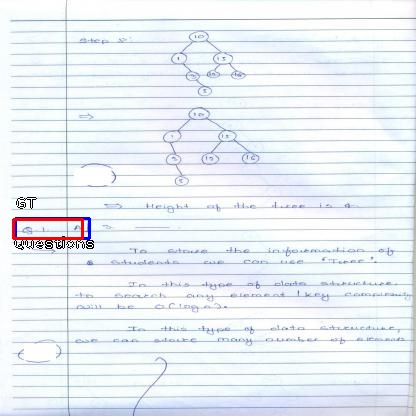 Step 5:
10
1 15
3 12 16
5
⇒ 10
1 15
3 12 16
5
⇒ Height of the tree is 4.
GT
Q.1. A>
Questions
→ To store the information of
students we can use "Tree".
In this type of data structure
to search any element / key complexity
will be O(log n).
In this type of data structure,
we can store many number of elements